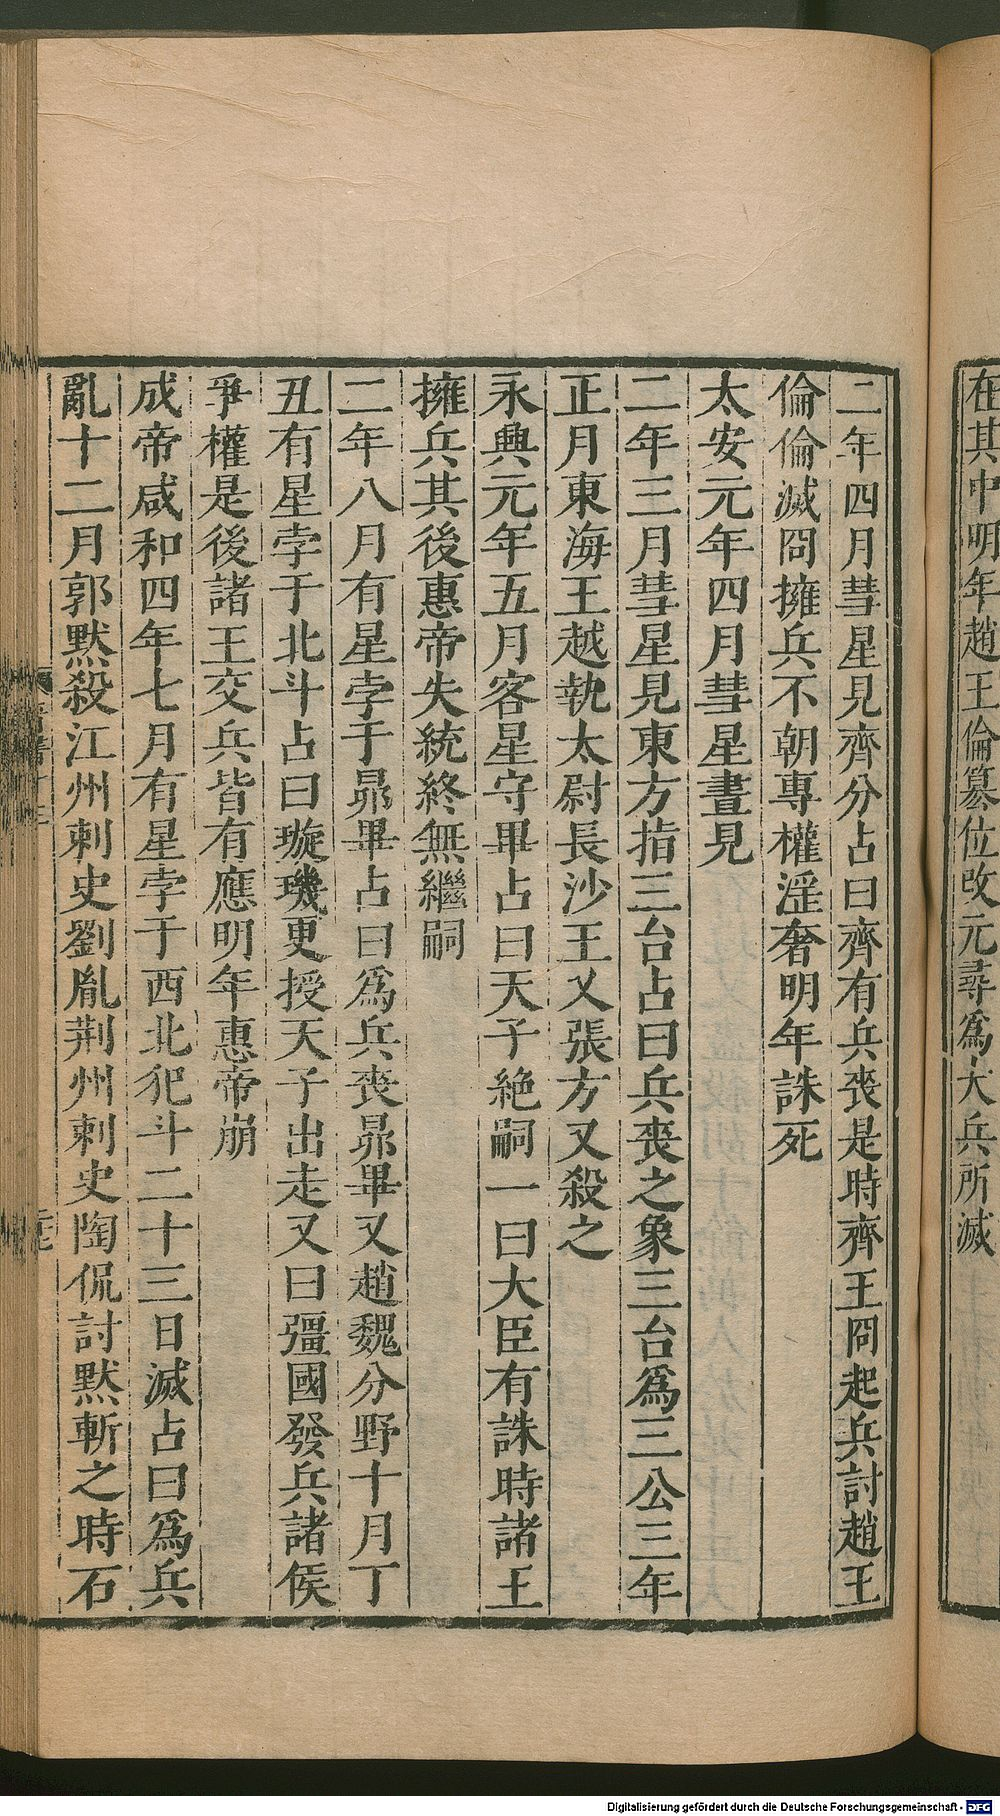 在其中明年趙王倫篡位改元尋爲大兵所滅
二年四月彗星見齊分占曰齊有兵喪是時齊王冏起兵討趙王
倫倫滅冏擁兵不朝專權淫奢明年誅死
太安元年四月彗星晝見
二年三月彗星見東方指三台占曰兵喪之象三台爲三公三年
正月東海王越執太尉長沙王乂張方又殺之
永興元年五月客星守畢占曰天子絶嗣一曰大臣有誅時諸王
擁兵其後惠帝失統終無繼嗣
二年八月有星孛于昴畢占曰爲兵喪昴畢又趙魏分野十月丁
丑有星孛于北斗占曰璇璣更授天子出走又曰彊國發兵諸侯
爭權是後諸王交兵皆有應明年惠帝崩
成帝咸和四年七月有星孛于西北犯斗二十三日滅占曰爲兵
亂十二月郭默殺江州刺史劉胤荆州刺史陶侃討默斬之時石
Digitalisierung gefördert durch die Deutsche Forschungsgemeinschaft - DFG